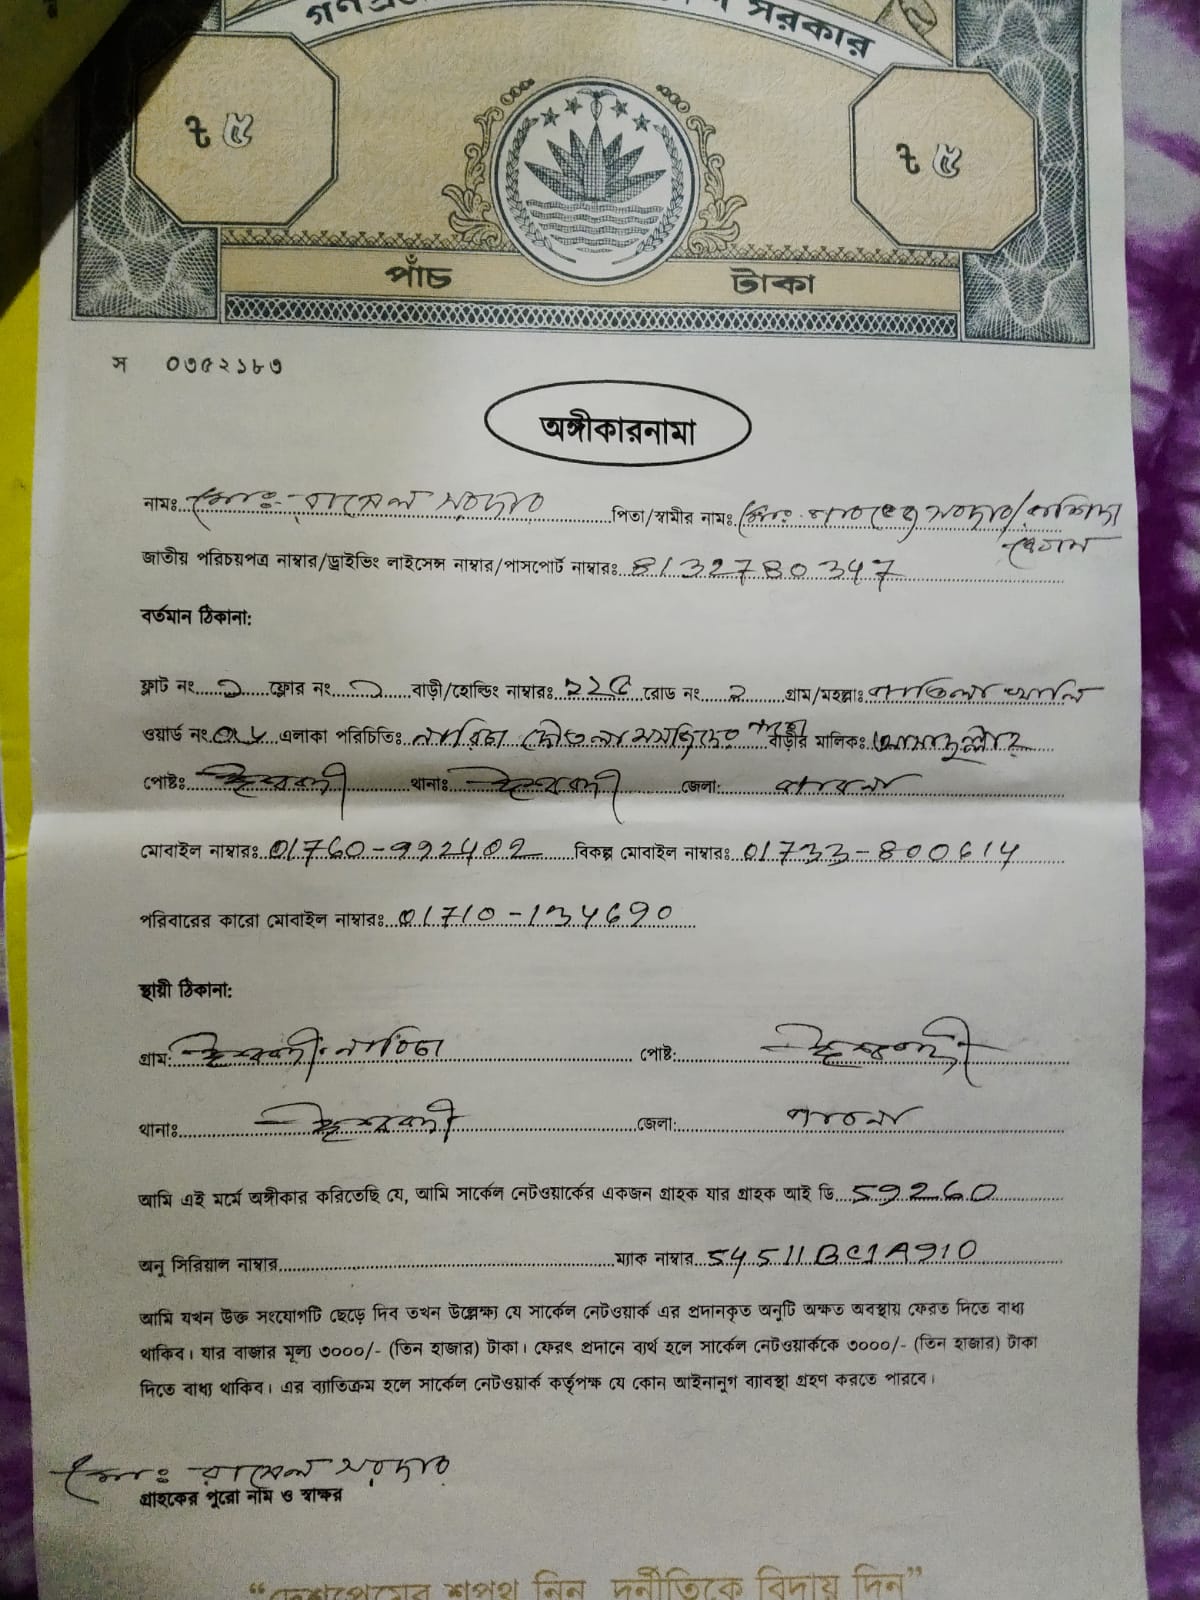 গণপ্র সরকার
ট ৫ ট ৫
পাঁচ টাকা
স ০৩৫২১৮৩
অঙ্গীকারনামা
নামঃ মোঃ রাসেল সরদার পিতা/স্বামীর নামঃ মোঃ সরদার/রাশিদা
বেগম
জাতীয় পরিচয়পত্র নাম্বার/ড্রাইভিং লাইসেন্স নাম্বার/পাসপোর্ট নাম্বারঃ 8132780347
বর্তমান ঠিকানা:
ফ্লাট নং ১ ফ্লোর নং ১ বাড়ী/হোল্ডিং নাম্বারঃ ২২৫ রোড নং ২ গ্রাম/মহল্লাঃ
ওয়ার্ড নং এলাকা পরিচিতিঃ নারিচা দোতলা মসজিদের পাশে বাড়ীর মালিকঃ
পোষ্টঃ ঈশ্বরদী থানাঃ ঈশ্বরদী জেলা: পাবনা
মোবাইল নাম্বারঃ 01760-992402 বিকল্প মোবাইল নাম্বারঃ 01733-800614
পরিবারের কারো মোবাইল নাম্বারঃ 01710-134690
স্থায়ী ঠিকানা:
গ্রাম: ঈশ্বরদী নারিচা পোষ্ট: ঈশ্বরদী
থানাঃ ঈশ্বরদী জেলা: পাবনা
আমি এই মর্মে অঙ্গীকার করিতেছি যে, আমি সার্কেল নেটওয়ার্কের একজন গ্রাহক যার গ্রাহক আই ডি 59260
অনু সিরিয়াল নাম্বার ম্যাক নাম্বার 54511BC1A910
আমি যখন উক্ত সংযোগটি ছেড়ে দিব তখন উল্লেক্ষ্য যে সার্কেল নেটওয়ার্ক এর প্রদানকৃত অনুটি অক্ষত অবস্থায় ফেরত দিতে বাধ্য
থাকিব। যার বাজার মূল্য ৩০০০/- (তিন হাজার) টাকা। ফেরৎ প্রদানে ব্যর্থ হলে সার্কেল নেটওয়ার্ককে ৩০০০/- (তিন হাজার) টাকা
দিতে বাধ্য থাকিব। এর ব্যাতিক্রম হলে সার্কেল নেটওয়ার্ক কর্তৃপক্ষ যে কোন আইনানুগ ব্যাবস্থা গ্রহণ করতে পারবে।
মোঃ রাসেল সরদার
গ্রাহকের পুরো নাম ও স্বাক্ষর
“দেশপ্রেমের শপথ নিন, দুর্নীতিকে বিদায় দিন”